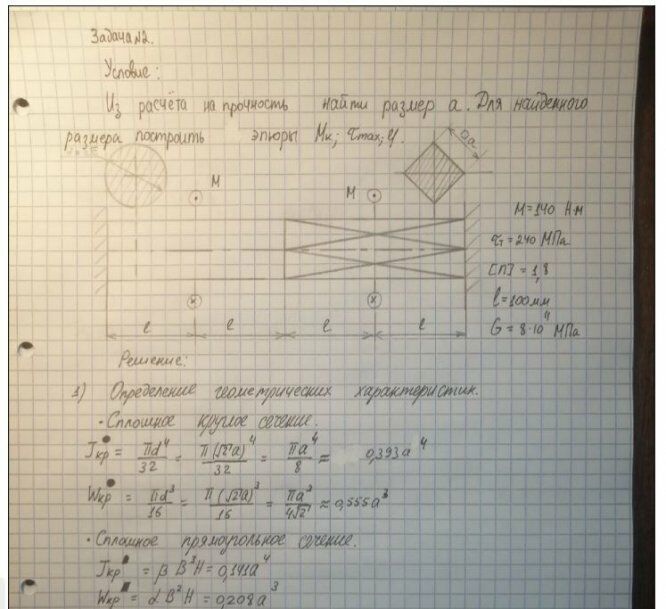 Задача №2.
Условие:
Из расчёта на прочность найти размер а. Для найденного
размера построить эпюры Мк; τmax; φ.
□a
M M
M=140 Н·м
τт=240 МПа
[n]=1,8
l=100мм
G=8·10⁴ МПа
l l l l
Решение:
1) Определение геометрических характеристик.
· Сплошное круглое сечение.
Jкр● = πd⁴/32 = π(√2a)⁴/32 = πa⁴/8 ≈ 0,393a⁴
Wкр● = πd³/16 = π(√2a)³/16 = πa³/4√2 ≈ 0,555a³
· Сплошное прямоугольное сечение.
Jкр■ = βB³H=0,141a⁴
Wкр■ = αB²H=0,208a³